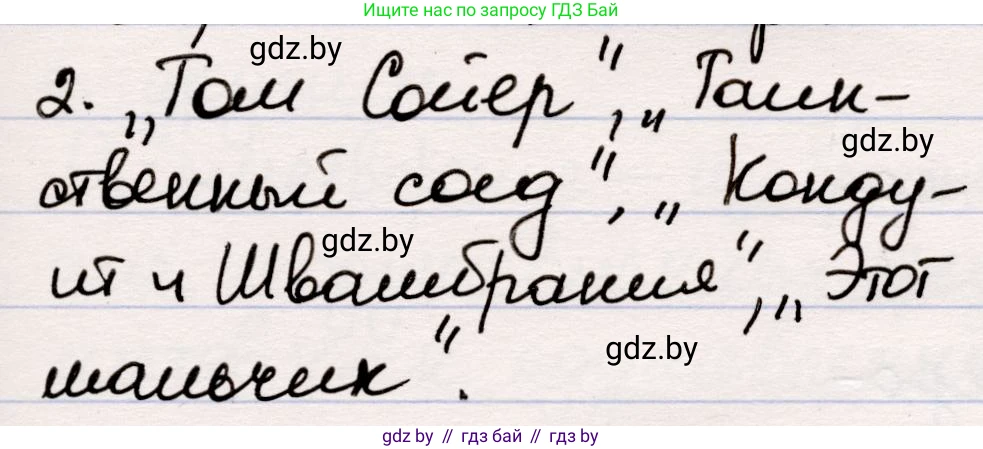 Ищите нас по запросу ГДЗ Бай
gdz.by
2. „Том Сойер", „Таин-
gdz.by
ственный сад", „Конду-
gdz.by
ит и Швамбрания", „Этот
gdz.by
мальчик".
gdz by // гдз бай // гдз by